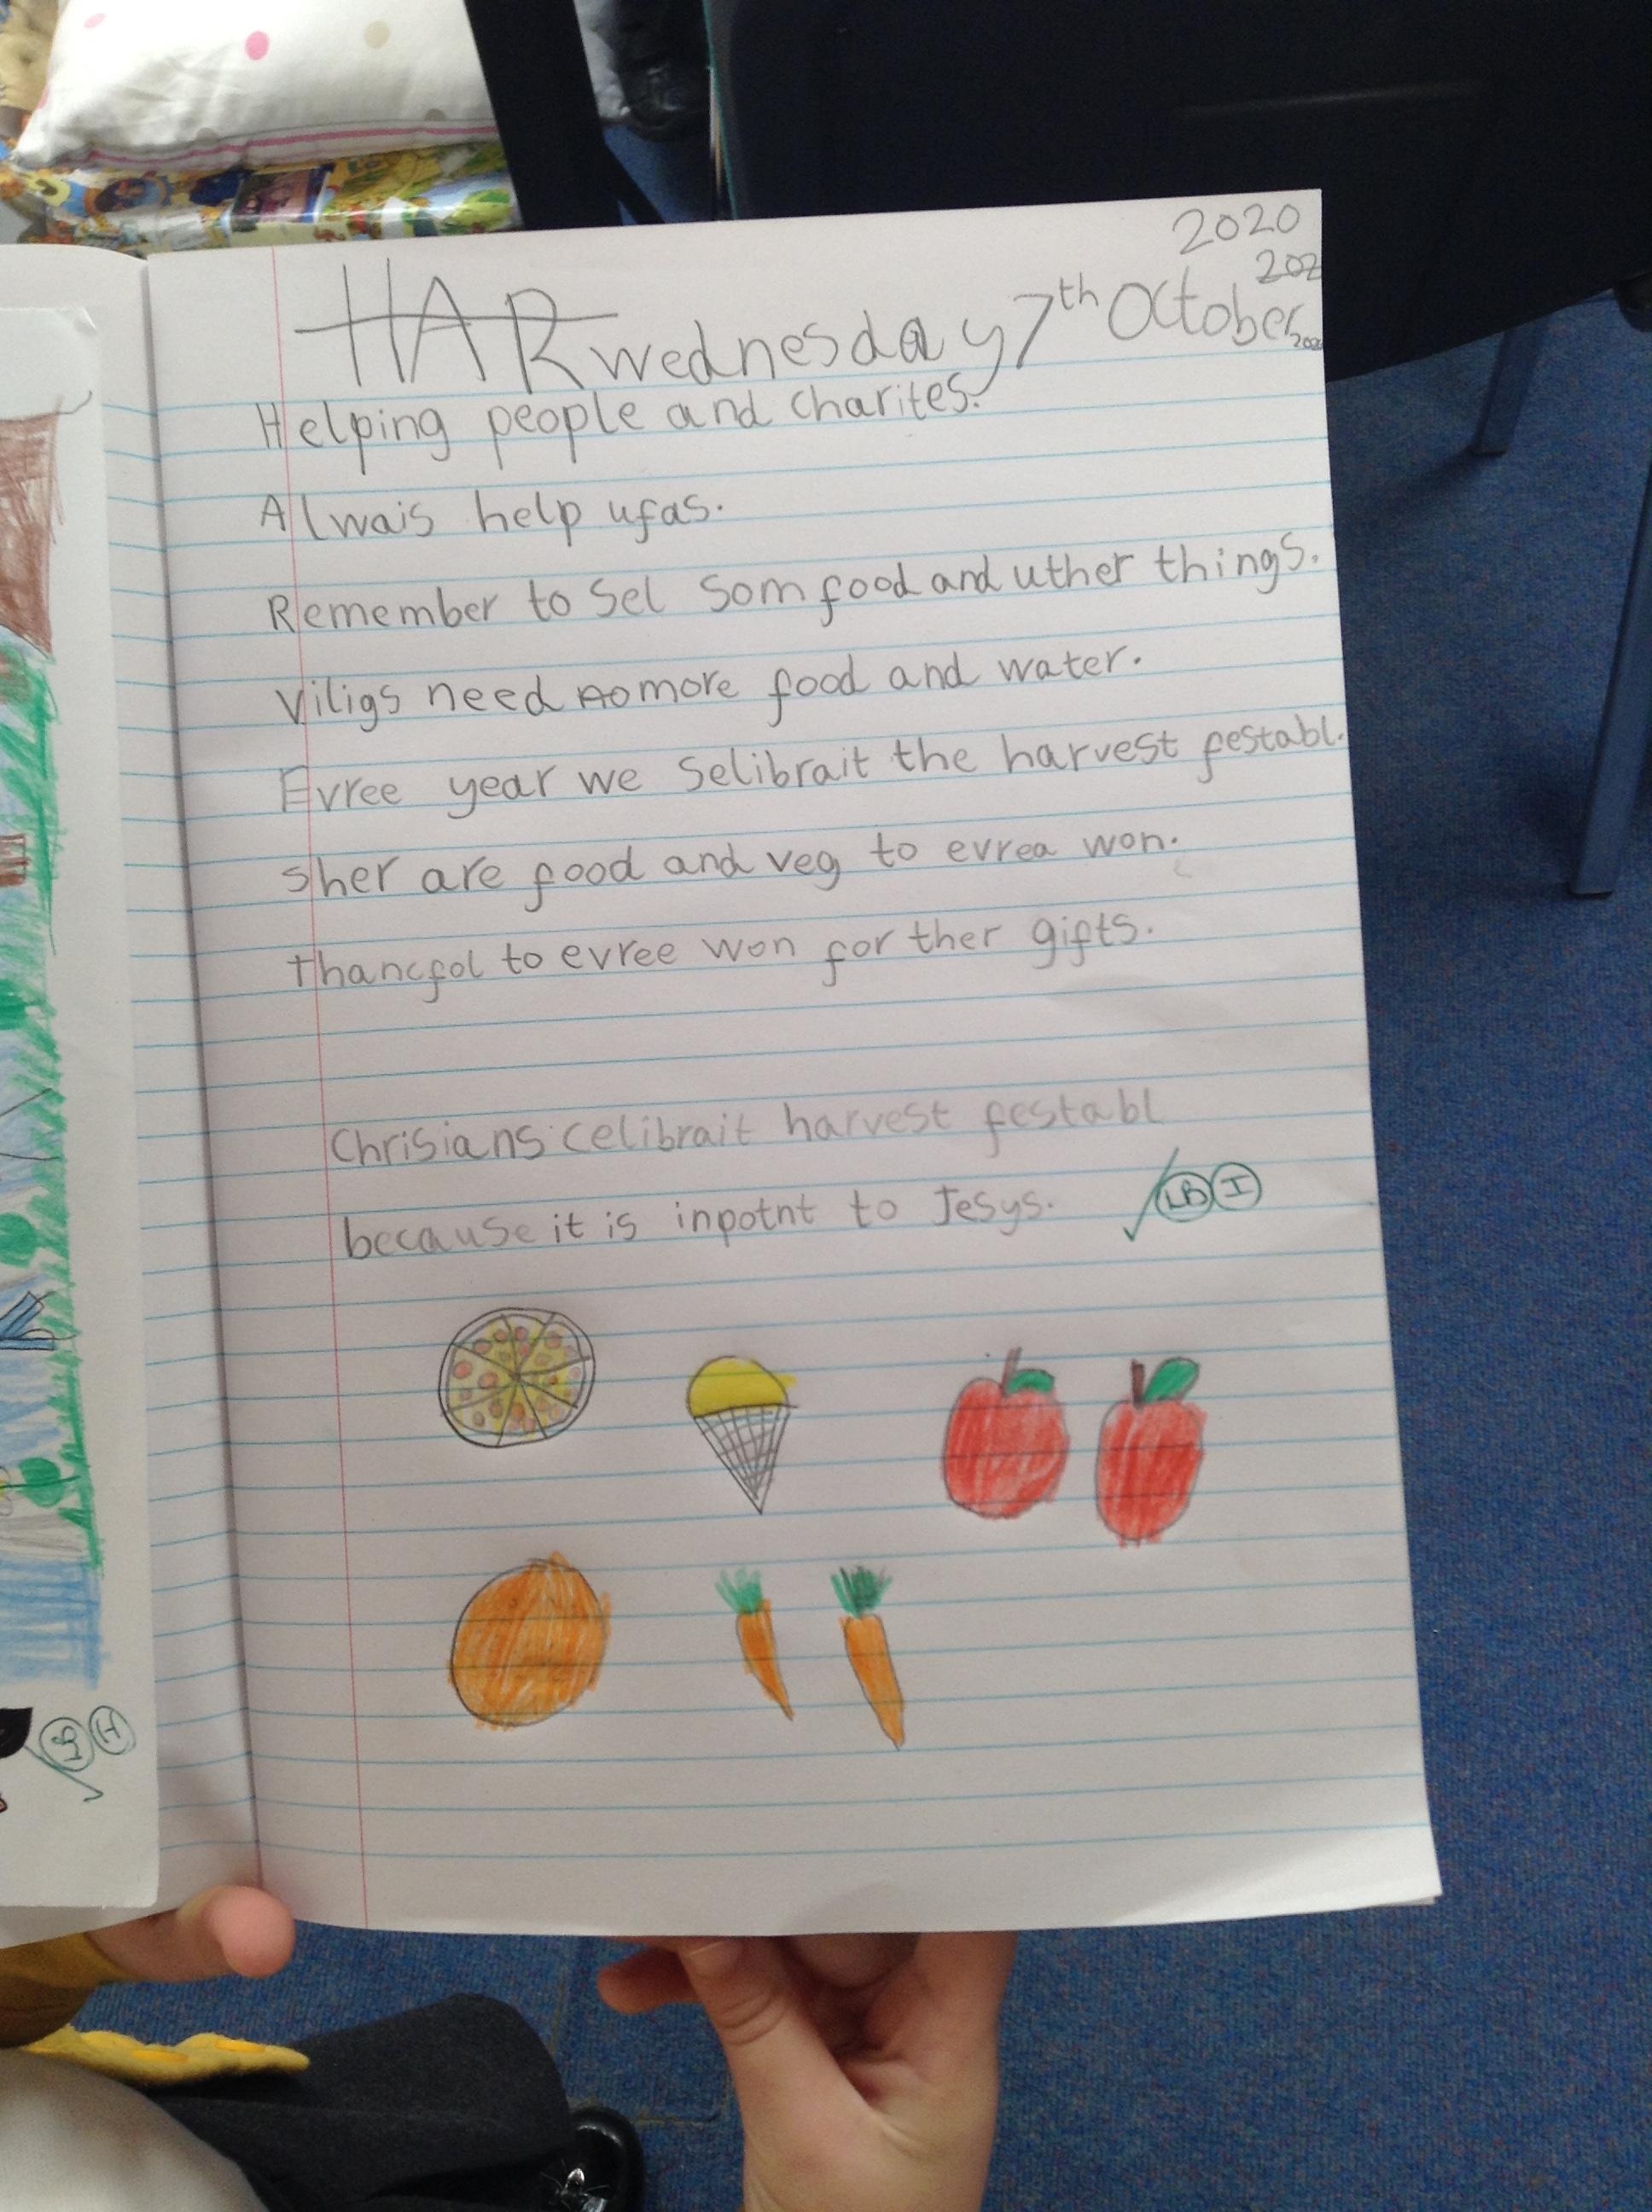 2020
202
HAR wednesday 7th October 2020
Helping people and charites.
Alwais help ufas.
Remember to sel som food and uther things.
Viligs need no more food and water.
Evree year we selibrait the harvest festabl.
sher are food and veg to evrea won.
thancfol to evree won for ther gifts.
Chrisians celibrait harvest festabl
because it is inpotnt to Jesys.
LB I